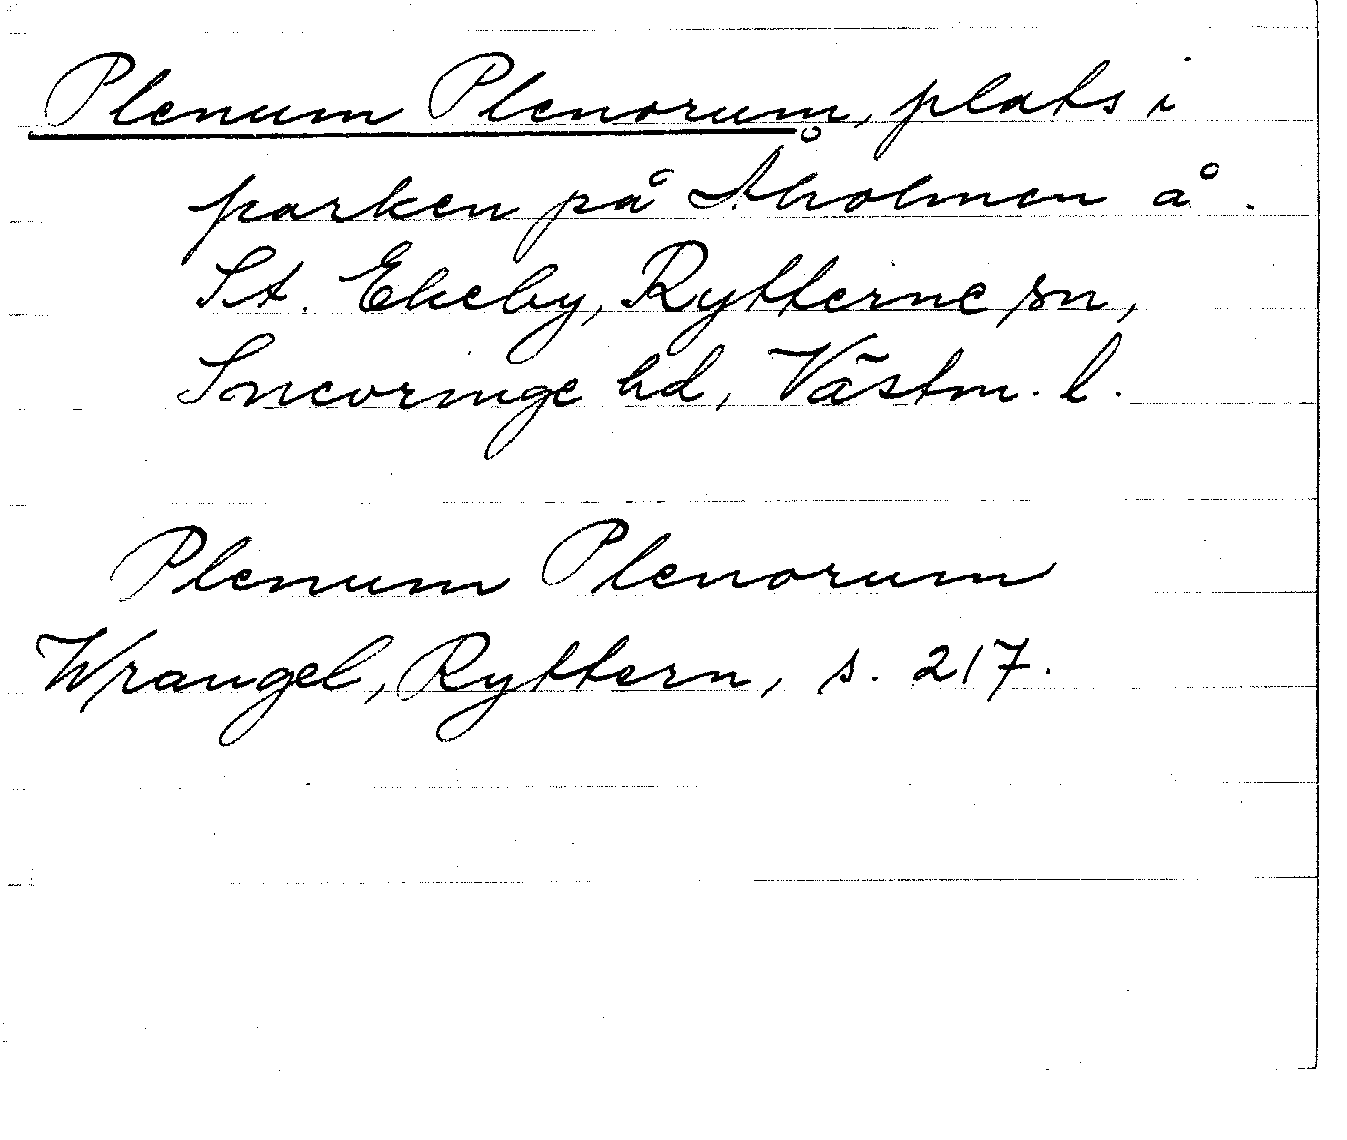 Plenum Plenorum, plats i
parken på Åholmen å
St. Ekeby, Rytterne sn,
Snevringe hd, Västm. l.
Plenum Plenorum
Wrangel, Ryttern, s. 217.